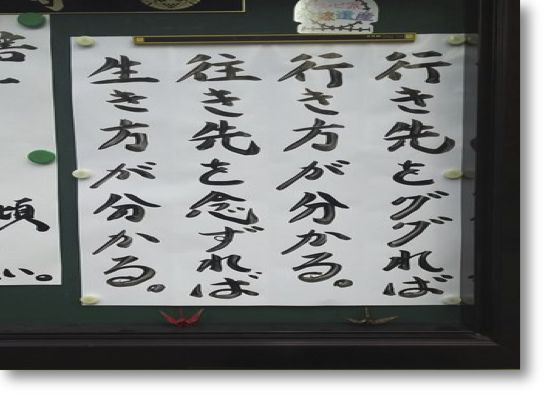 行き先をググれば
行き方が分かる。
往き先を念ずれば
生き方が分かる。